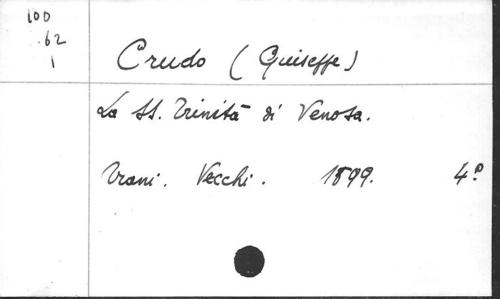 100
.62
1
Crudo (Guiseffe)
La SS. Trinità di Venosa.
Trani. Vecchi. 1899. 4º